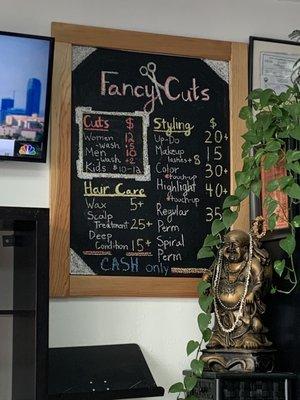 Fancy Cuts
Cuts $
Women 12
+ Wash 5
Men 10
wash +2
Kids $10-12
Hair Care
Wax 5+
Scalp
Treatment 25+
Deep
Condition 15+
Styling $
Up-Do 20+
Makeup 15
lashes+8
Color 30+
+touch-up
Highlight 40+
+touch-up
Regular 35
Perm
Spiral
Perm
CASH only